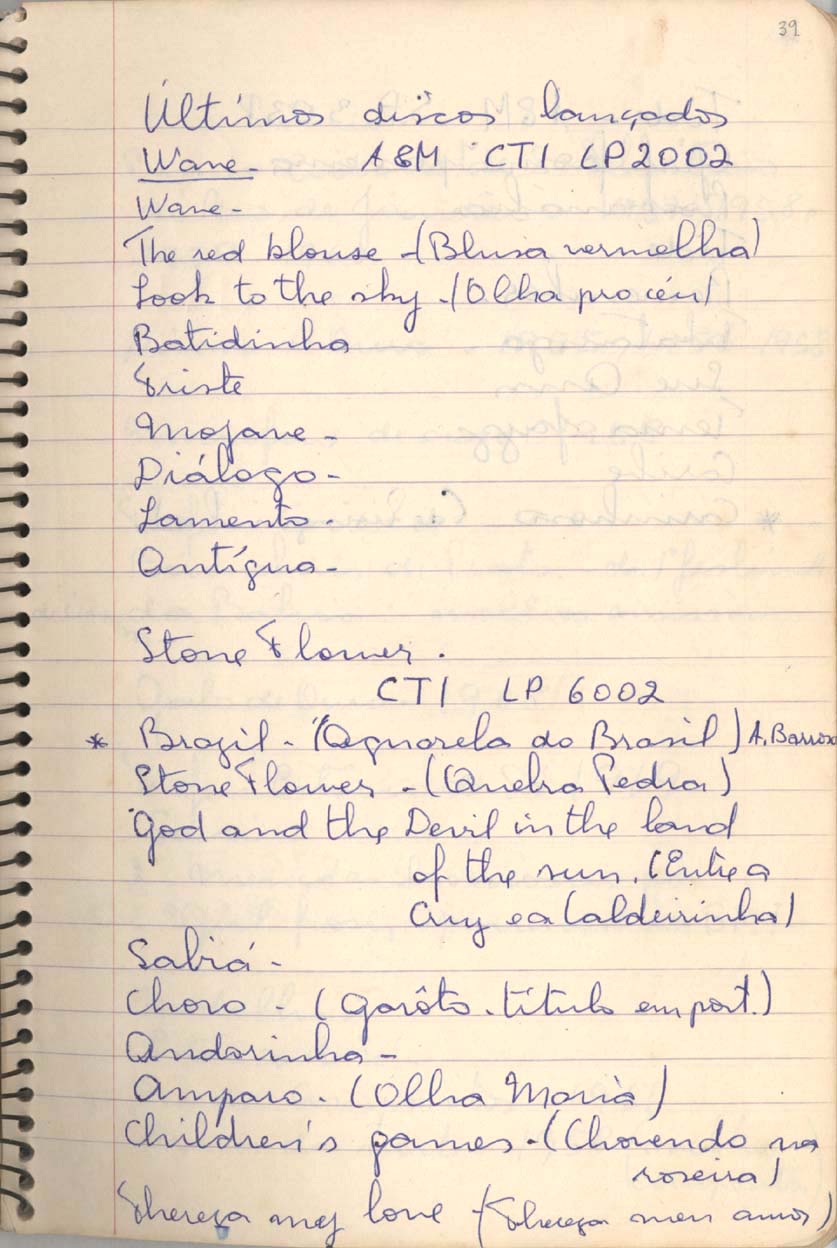 39
Últimos discos lançados
Wave - A&M CTI LP2002
Wave -
The red blouse - (Blusa vermelha)
Look to the sky - (Olha pro céu)
Batidinha
Triste
Mojave -
Diálogo -
Lamento -
Antígua -
Stone Flower.
CTI LP 6002
* Brazil - (Aquarela do Brasil) A. Barroso
Stone Flower - (Quebra Pedra)
God and the Devil in the land
of the sun. (Entre a
Cruz e a Caldeirinha)
Sabiá -
Choro - (Garôto - título em port.)
Andorinha -
Amparo - (Olha Maria)
Children's games - (Chovendo na
roseira)
Thereza my love - (Thereza meu amor)